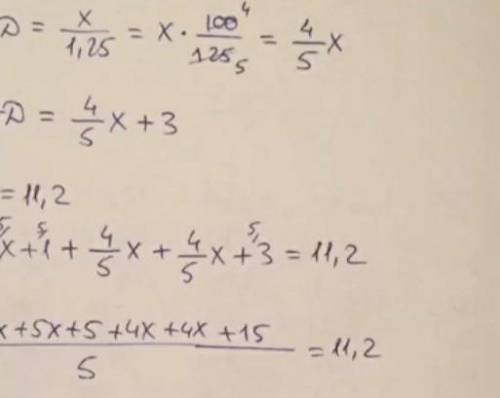 D = x/1,25 = x · 100⁴/125₅ = 4/5 x
-D = 4/5 x + 3
= 11,2
x + 1 + 4/5 x + 4/5 x + 3 = 11,2
x + 5x + 5 + 4x + 4x + 15 / 5 = 11,2